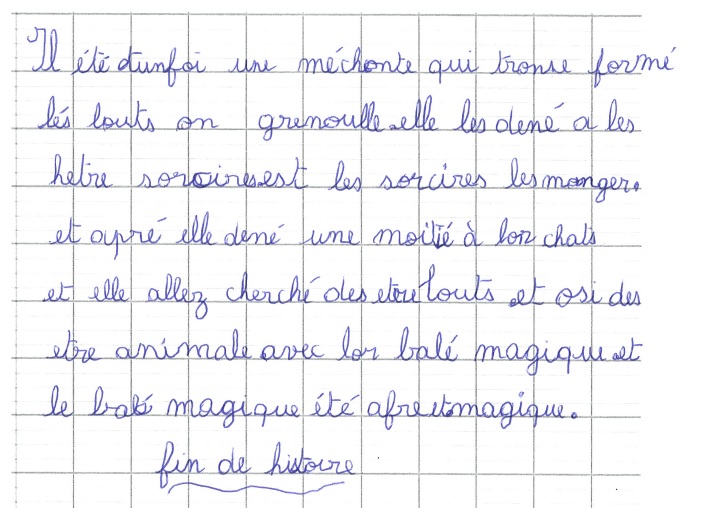 Il été dunfoi une méchonte qui tronse formé
lés louts on grenoulle.elle les dené a les
hetre sorcires.est les sorcires les manger.
et apré elle dené une moitié à lor chats
et elle allez cherché des etre louts et osi des
etre animale avec lor balé magique et
le balé magique été afreus magique.
fin de histoire